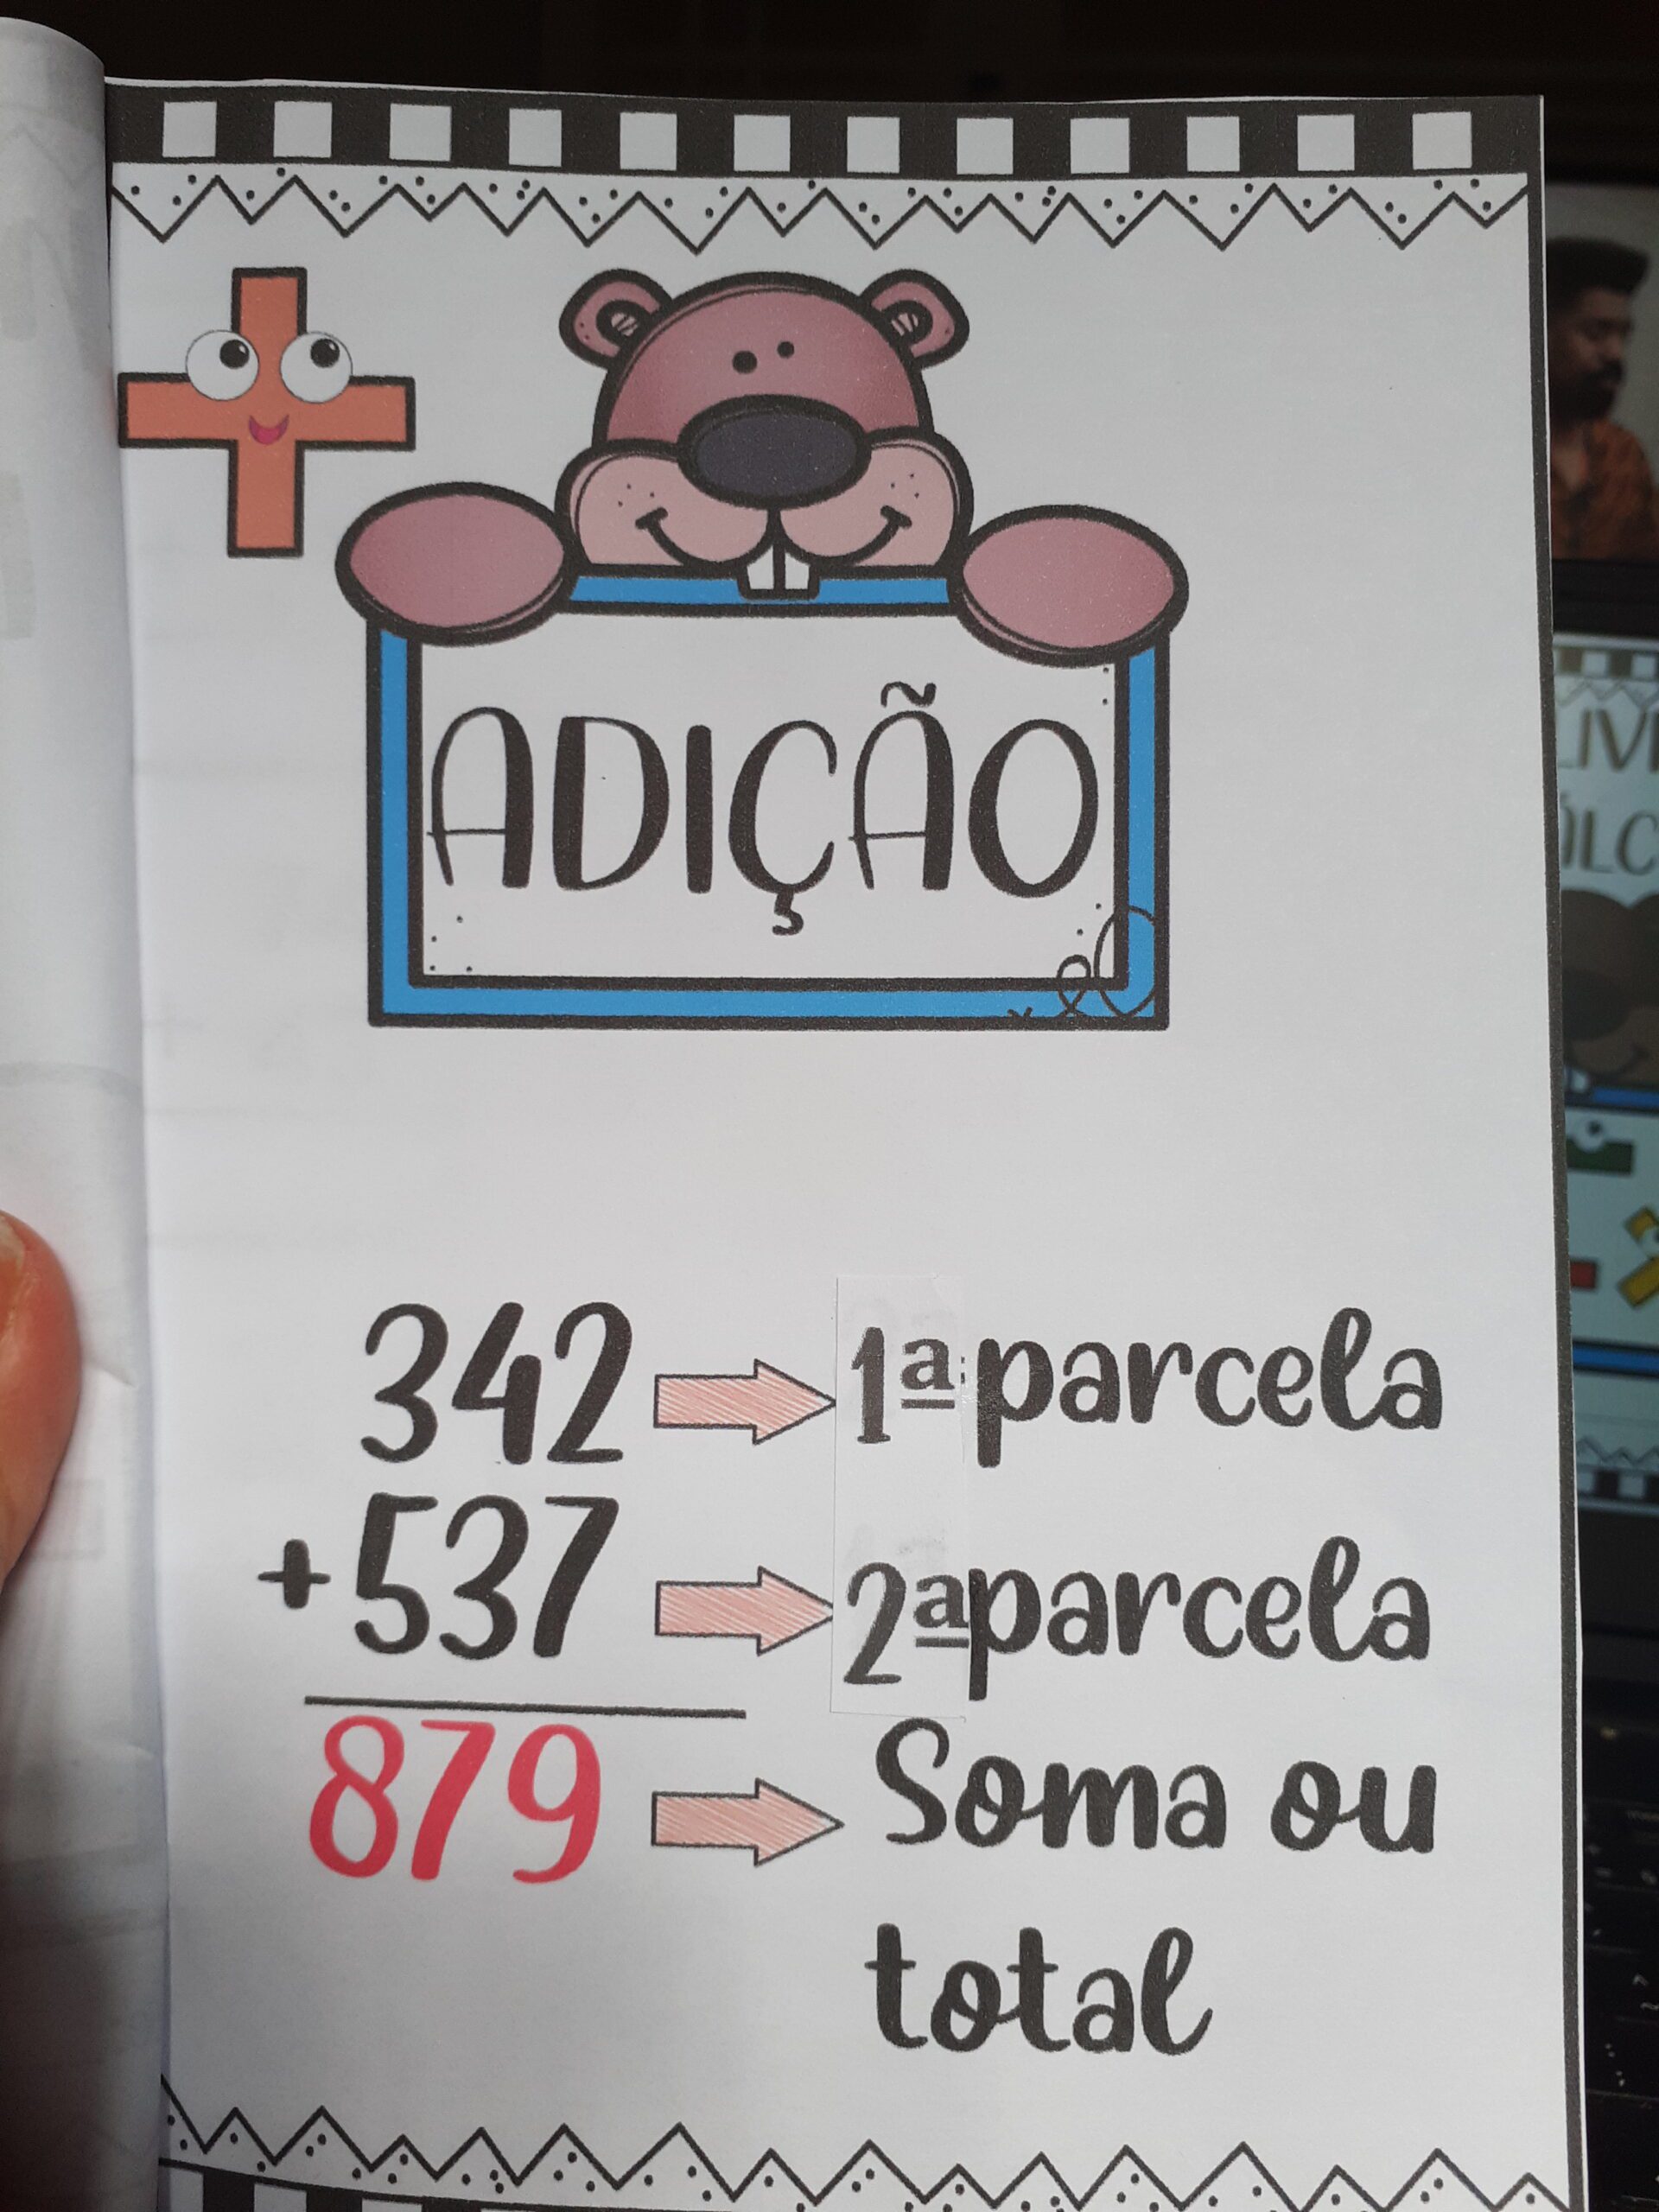 ADIÇÃO
342 1ª parcela
+537 2ª parcela
879 Soma ou
total